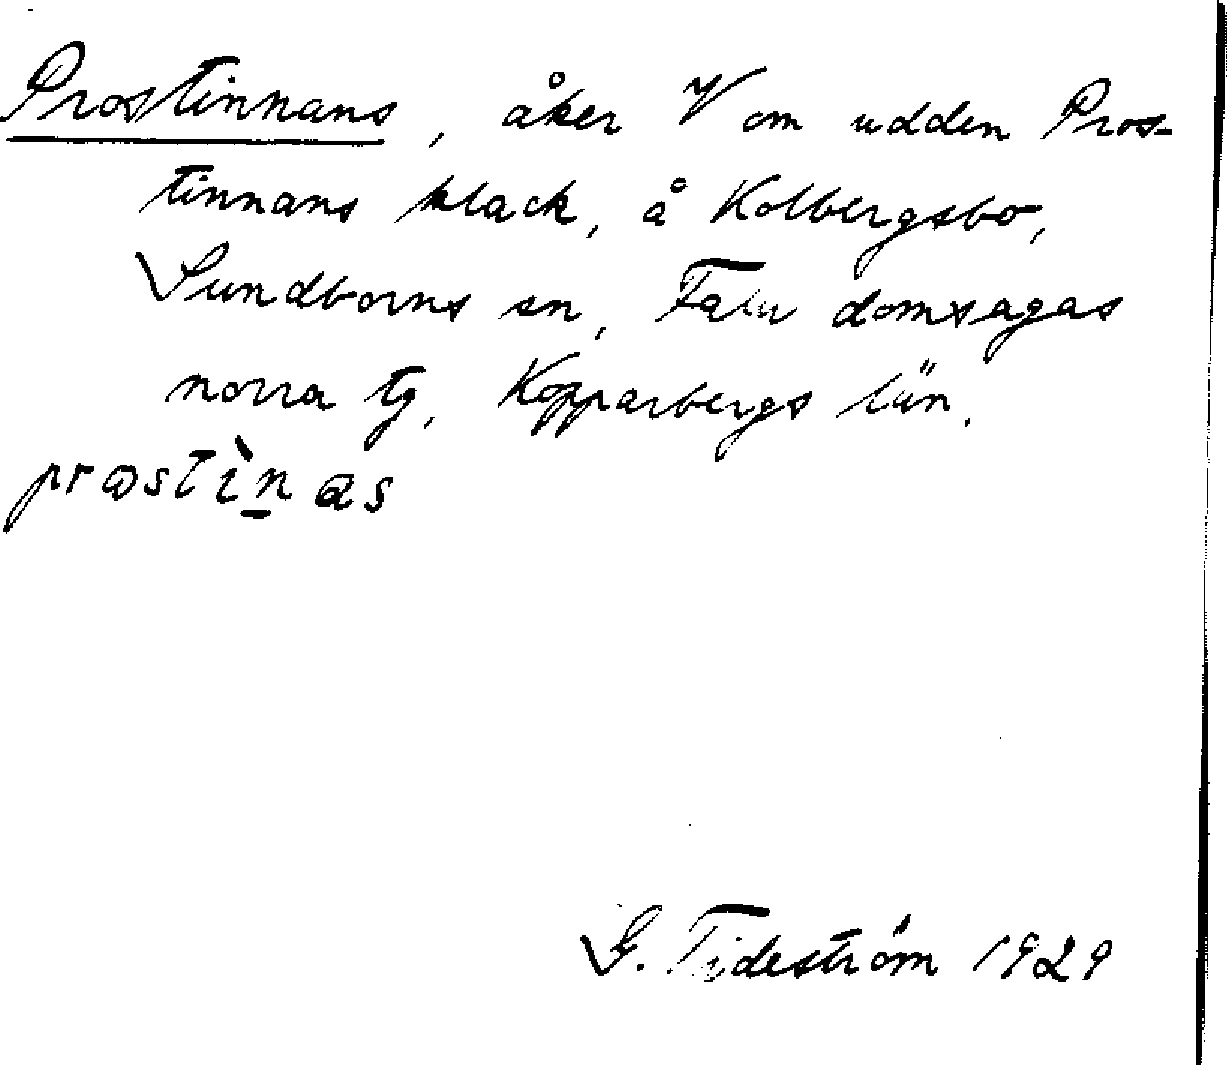 Prostinnans, åker V om udden Pros-
tinnans klack, å Kolbergsbo,
Sundborns sn, Falu domsagas
norra tg, Kopparbergs län.
G. Tideström 1929